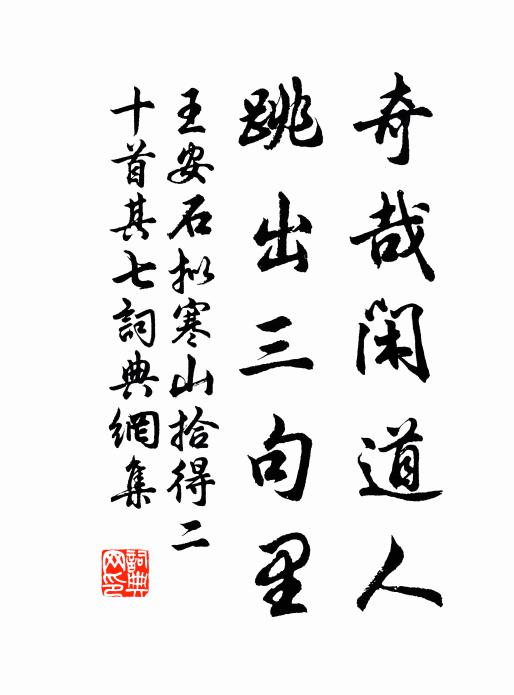 奇哉閑道人
跳出三句里
王安石拟寒山拾得二
十首其七詞典網集
詞典網印